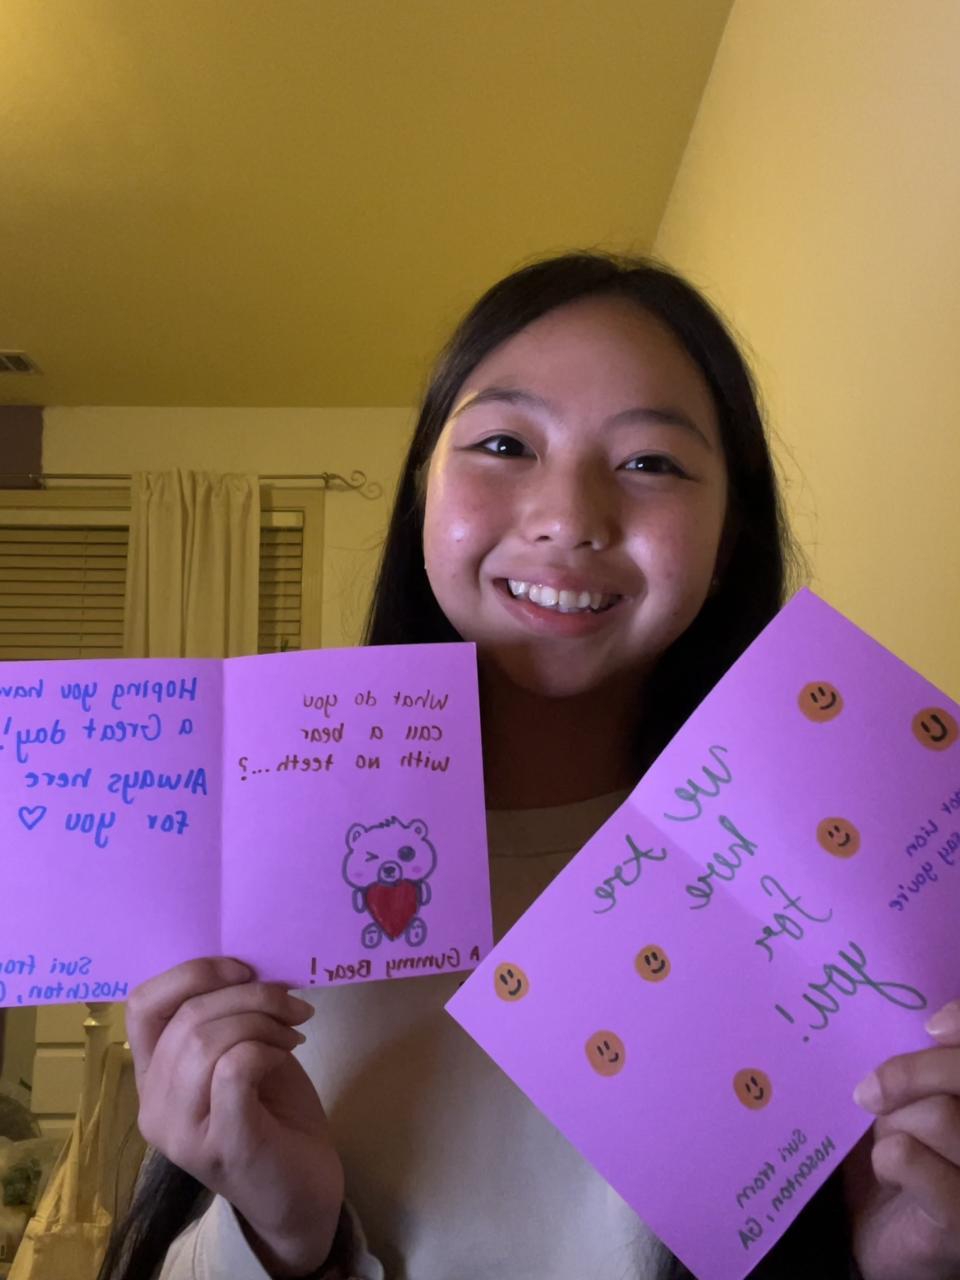 Hoping you hav
a Great day!
Always here
for you ♡
Suri from
Hoschton, G
What do you
call a bear
with no teeth...?
A Gummy Bear!
We are
here
for
you!
Suri from
Hoschton, GA
Lion
say you're